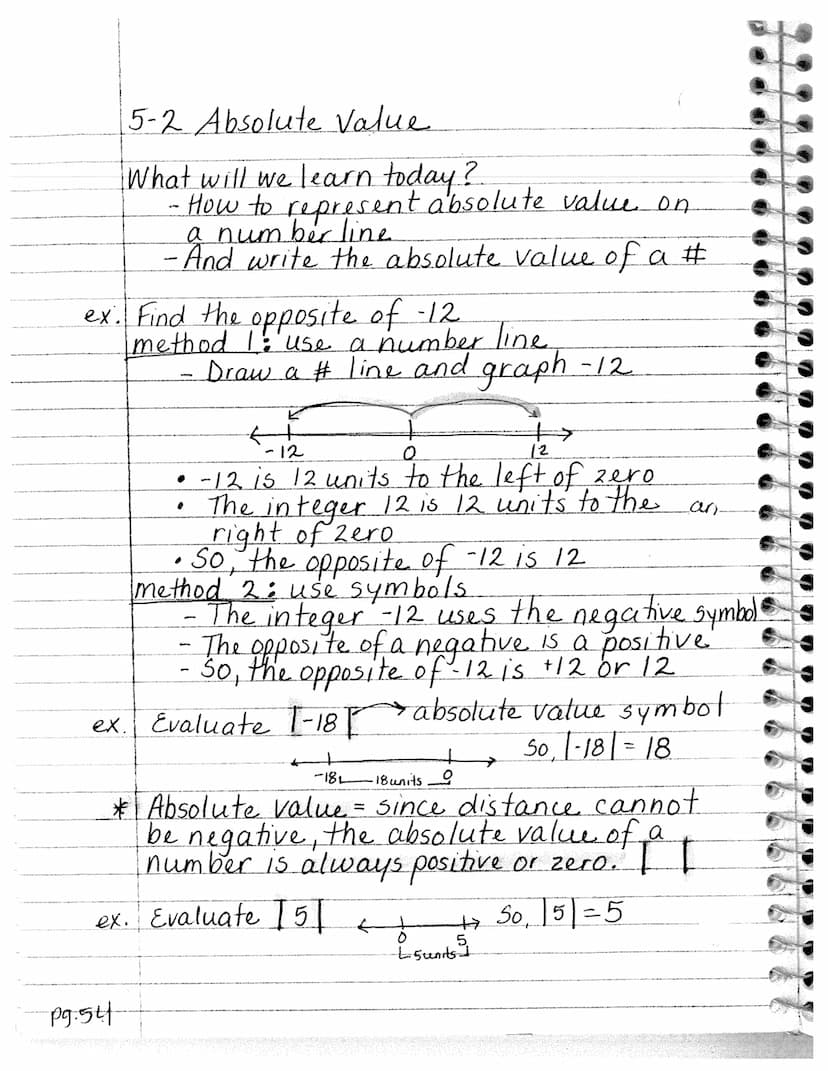 5-2 Absolute Value
What will we learn today?
- How to represent absolute value on
a number line
- And write the absolute value of a #
ex. Find the opposite of -12
method 1: use a number line
- Draw a # line and graph -12
-12 0 12
• -12 is 12 units to the left of zero
• The integer 12 is 12 units to the
right of zero
• So, the opposite of -12 is 12
method 2: use symbols
- The integer -12 uses the negative symbol
- The opposite of a negative is a positive
- So, the opposite of -12 is +12 or 12
ex. Evaluate |-18| → absolute value symbol
So, |-18| = 18
-18 18 units 0
* Absolute value = since distance cannot
be negative, the absolute value of a
number is always positive or zero. | |
ex. Evaluate |5| So, |5| = 5
0 5
5 units